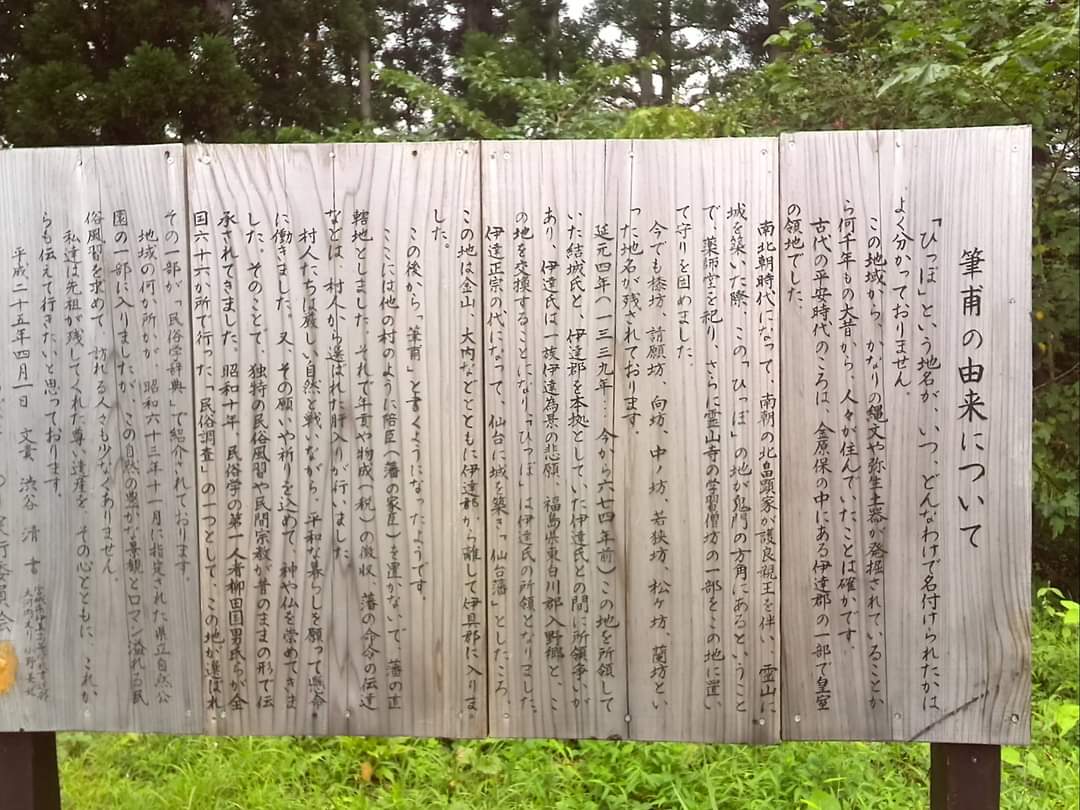 筆甫の由来について
「ひっぽ」という地名が、いつ、どんなわけで名付けられたかは
よく分かっておりません。
この地域から、かなりの縄文や弥生土器が発掘されていることか
ら何千年もの大昔から、人々が住んでいたことは確かです。
古代の平安時代のころは、金原保の中にある伊達郡の一部で皇室
の領地でした。
南北朝時代になって、南朝の北畠顕家が護良親王を伴い、霊山に
城を築いた際、この「ひっぽ」の地が鬼門の方角にあるということ
で、薬師堂を祀り、さらに霊山寺の学習僧坊の一部をこの地に置い
て守りを固めました。
今でも椿坊、請願坊、向坊、中ノ坊、若狭坊、松ヶ坊、蘭坊とい
った地名が残されております。
延元四年(一三三九年…今から六七四年前)この地を所領して
いた結城氏と、伊達郡を本拠としていた伊達氏との間に所領争いが
あり、伊達氏は一族伊達為景の悲願、福島県東白川郡入野郷と、こ
の地を交換することになり「ひっぽ」は伊達氏の所領となりました。
伊達正宗の代になって、仙台に城を築き「仙台藩」としたころ、
この地は金山、大内などとともに伊達郡から離して伊具郡に入りま
した。
この後から「筆甫」と書くようになったようです。
ここには他の村のように陪臣(藩の家臣)を置かないで、藩の直
轄地としました。それで年貢や物成(税)の徴収、藩の命令の伝達
などは、村人から選ばれた肝入りが行いました。
村人たちは厳しい自然と戦いながら、平和な暮らしを願って懸命
に働きました。又、その願いや祈りを込めて、神や仏を崇めてきま
した。そのことで、独特の民俗風習や民間宗教が昔のままの形で伝
承されてきました。昭和十年、民俗学の第一人者柳田国男氏らが全
国六十六か所で行った「民俗調査」の一つとして、この地が選ばれ
その一部が「民俗学辞典」で紹介されております。
地域の何か所かが、昭和六十三年十一月に指定された県立自然公
園の一部に入りましたが、この自然の豊かな景観とロマン溢れる民
俗風習を求めて、訪れる人さも少なくありません。
私達は先祖が残してくれた尊い遺産を、その心とともに、これか
らも伝えて行きたいと思っております。
平成二十五年四月一日 文責 渋谷 清
実行委員会